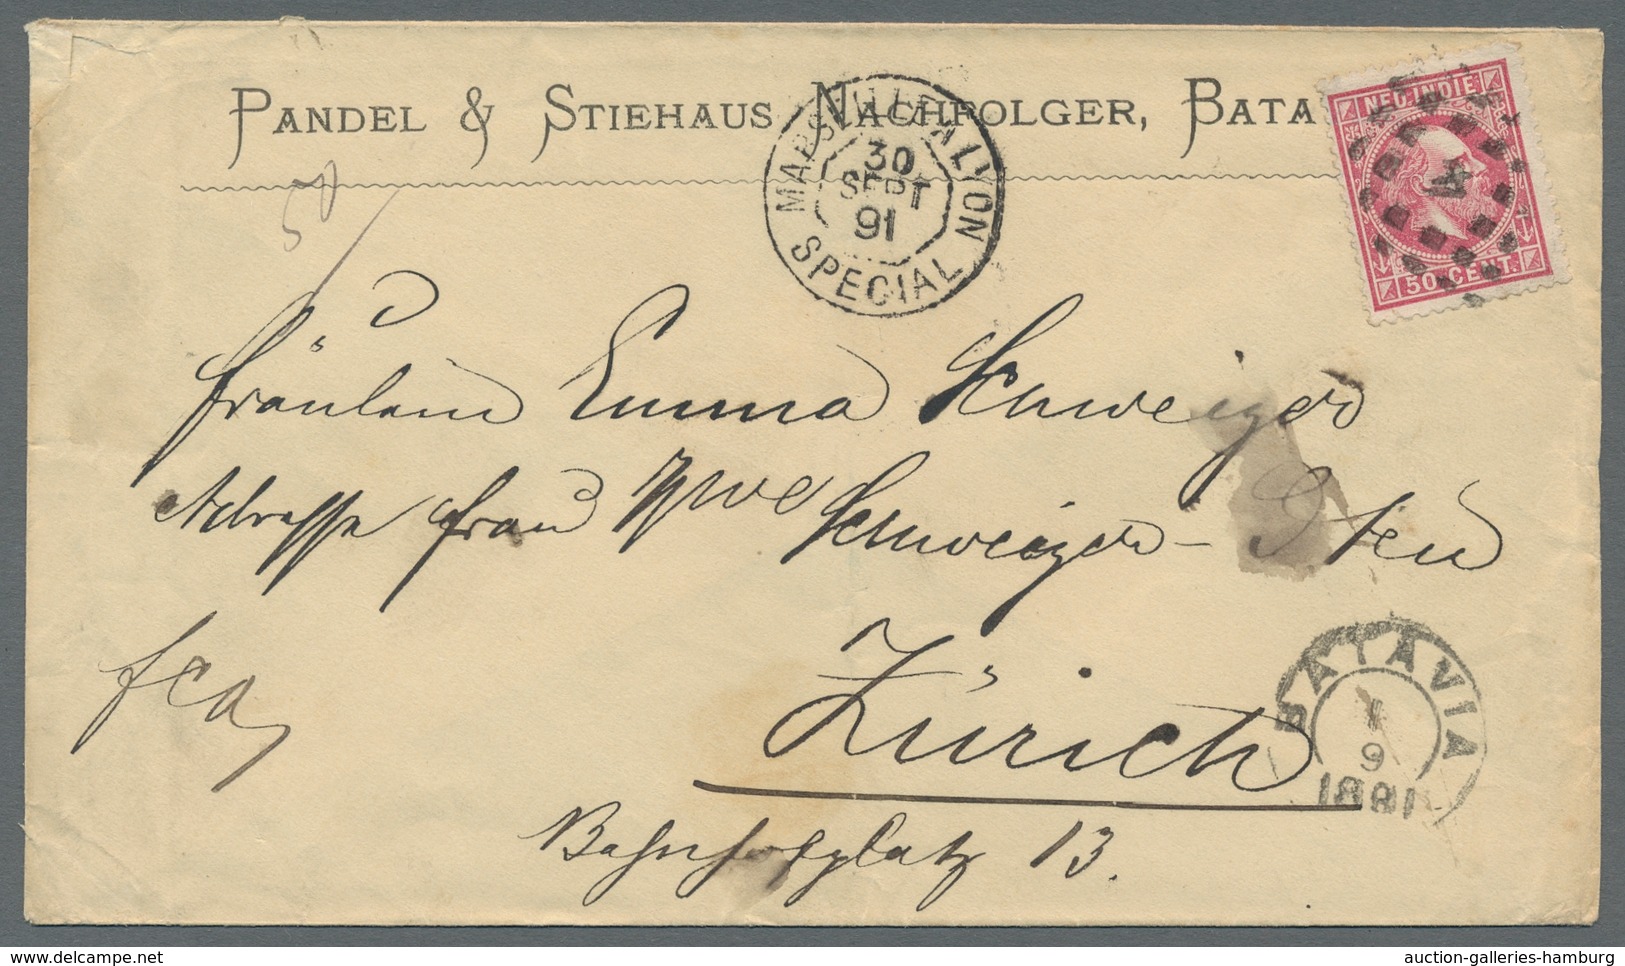 PANDEL & STIEHAUS NACHFOLGER, BATA
NED. INDIE
50 CENT.
MARSEILLE A LYON
30
SEPT
91
SPECIAL
50
Fräulein Emma Schweiger
Adresse Frau Wwe Schweiger-
fco
Zürich
Bahnhofplatz 13.
BATAVIA
1
9
1891
delcampe.net
auction-galleries-hamburg